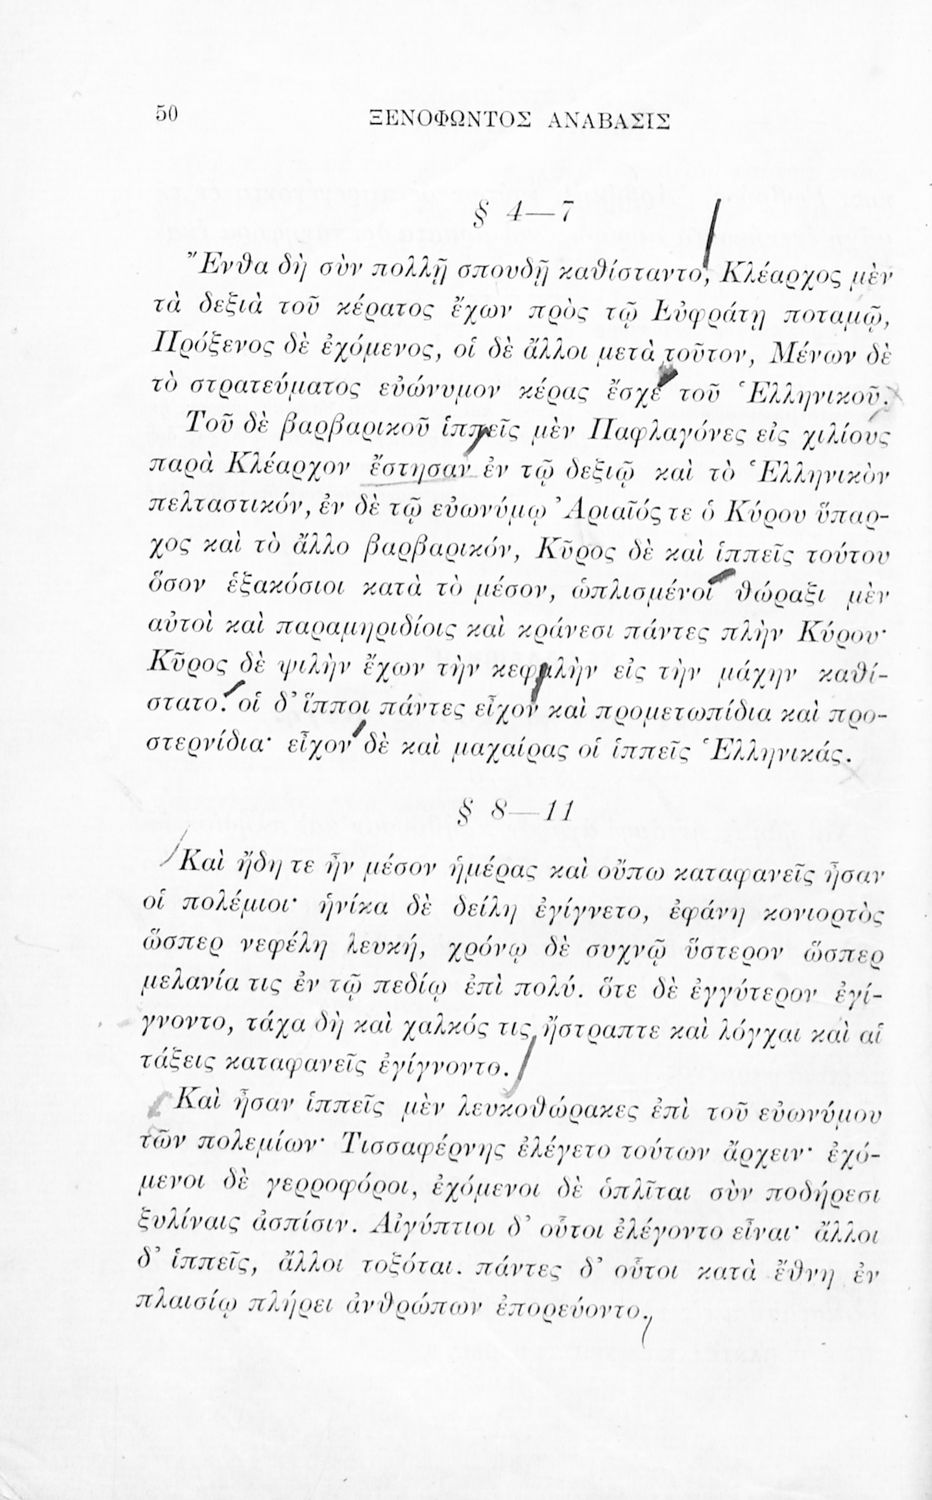 50
ΞΕΝΟΦΩΝΤΟΣ ΑΝΑΒΑΣΙΣ
§ 4—7
Ἔνθα δὴ σὺν πολλῇ σπουδῇ καθίσταντο, Κλέαρχος μὲν
τὰ δεξιὰ τοῦ κέρατος ἔχων πρὸς τῷ Εὐφράτῃ ποταμῷ,
Πρόξενος δὲ ἐχόμενος, οἱ δὲ ἄλλοι μετὰ τοῦτον, Μένων δὲ
τὸ στρατεύματος εὐώνυμον κέρας ἔσχε τοῦ Ἑλληνικοῦ.
Τοῦ δὲ βαρβαρικοῦ ἱππεῖς μὲν Παφλαγόνες εἰς χιλίους
παρὰ Κλέαρχον ἔστησαν ἐν τῷ δεξιῷ καὶ τὸ Ἑλληνικὸν
πελταστικόν, ἐν δὲ τῷ εὐωνύμῳ Ἀριαῖός τε ὁ Κύρου ὕπαρ-
χος καὶ τὸ ἄλλο βαρβαρικόν, Κῦρος δὲ καὶ ἱππεῖς τούτου
ὅσον ἑξακόσιοι κατὰ τὸ μέσον, ὡπλισμένοι θώραξι μὲν
αὐτοὶ καὶ παραμηριδίοις καὶ κράνεσι πάντες πλὴν Κύρου·
Κῦρος δὲ ψιλὴν ἔχων τὴν κεφαλὴν εἰς τὴν μάχην καθί-
στατο. οἱ δ' ἵπποι πάντες εἶχον καὶ προμετωπίδια καὶ προ-
στερνίδια· εἶχον δὲ καὶ μαχαίρας οἱ ἱππεῖς Ἑλληνικάς.
§ 8—11
Καὶ ἤδη τε ἦν μέσον ἡμέρας καὶ οὔπω καταφανεῖς ἦσαν
οἱ πολέμιοι· ἡνίκα δὲ δείλη ἐγίγνετο, ἐφάνη κονιορτὸς
ὥσπερ νεφέλη λευκή, χρόνῳ δὲ συχνῷ ὕστερον ὥσπερ
μελανία τις ἐν τῷ πεδίῳ ἐπὶ πολύ. ὅτε δὲ ἐγγύτερον ἐγί-
γνοντο, τάχα δὴ καὶ χαλκός τις ἤστραπτε καὶ λόγχαι καὶ αἱ
τάξεις καταφανεῖς ἐγίγνοντο.
Καὶ ἦσαν ἱππεῖς μὲν λευκοθώρακες ἐπὶ τοῦ εὐωνύμου
τῶν πολεμίων· Τισσαφέρνης ἐλέγετο τούτων ἄρχειν· ἐχό-
μενοι δὲ γερροφόροι, ἐχόμενοι δὲ ὁπλῖται σὺν ποδήρεσι
ξυλίναις ἀσπίσιν. Αἰγύπτιοι δ' οὗτοι ἐλέγοντο εἶναι· ἄλλοι
δ' ἱππεῖς, ἄλλοι τοξόται. πάντες δ' οὗτοι κατὰ ἔθνη ἐν
πλαισίῳ πλήρει ἀνθρώπων ἐπορεύοντο.